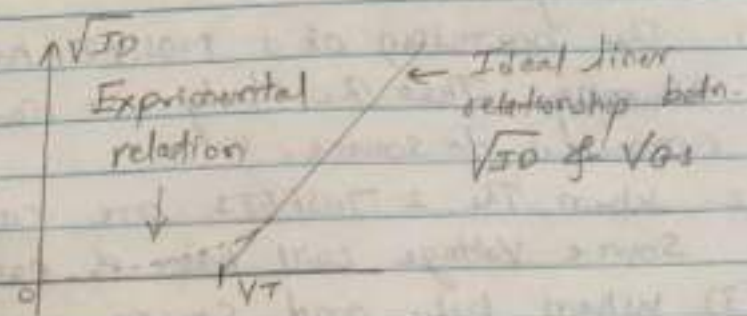 √ID
Exprimental
relation
← Ideal liner
relationship betn.
√ID & VGS
0
VT